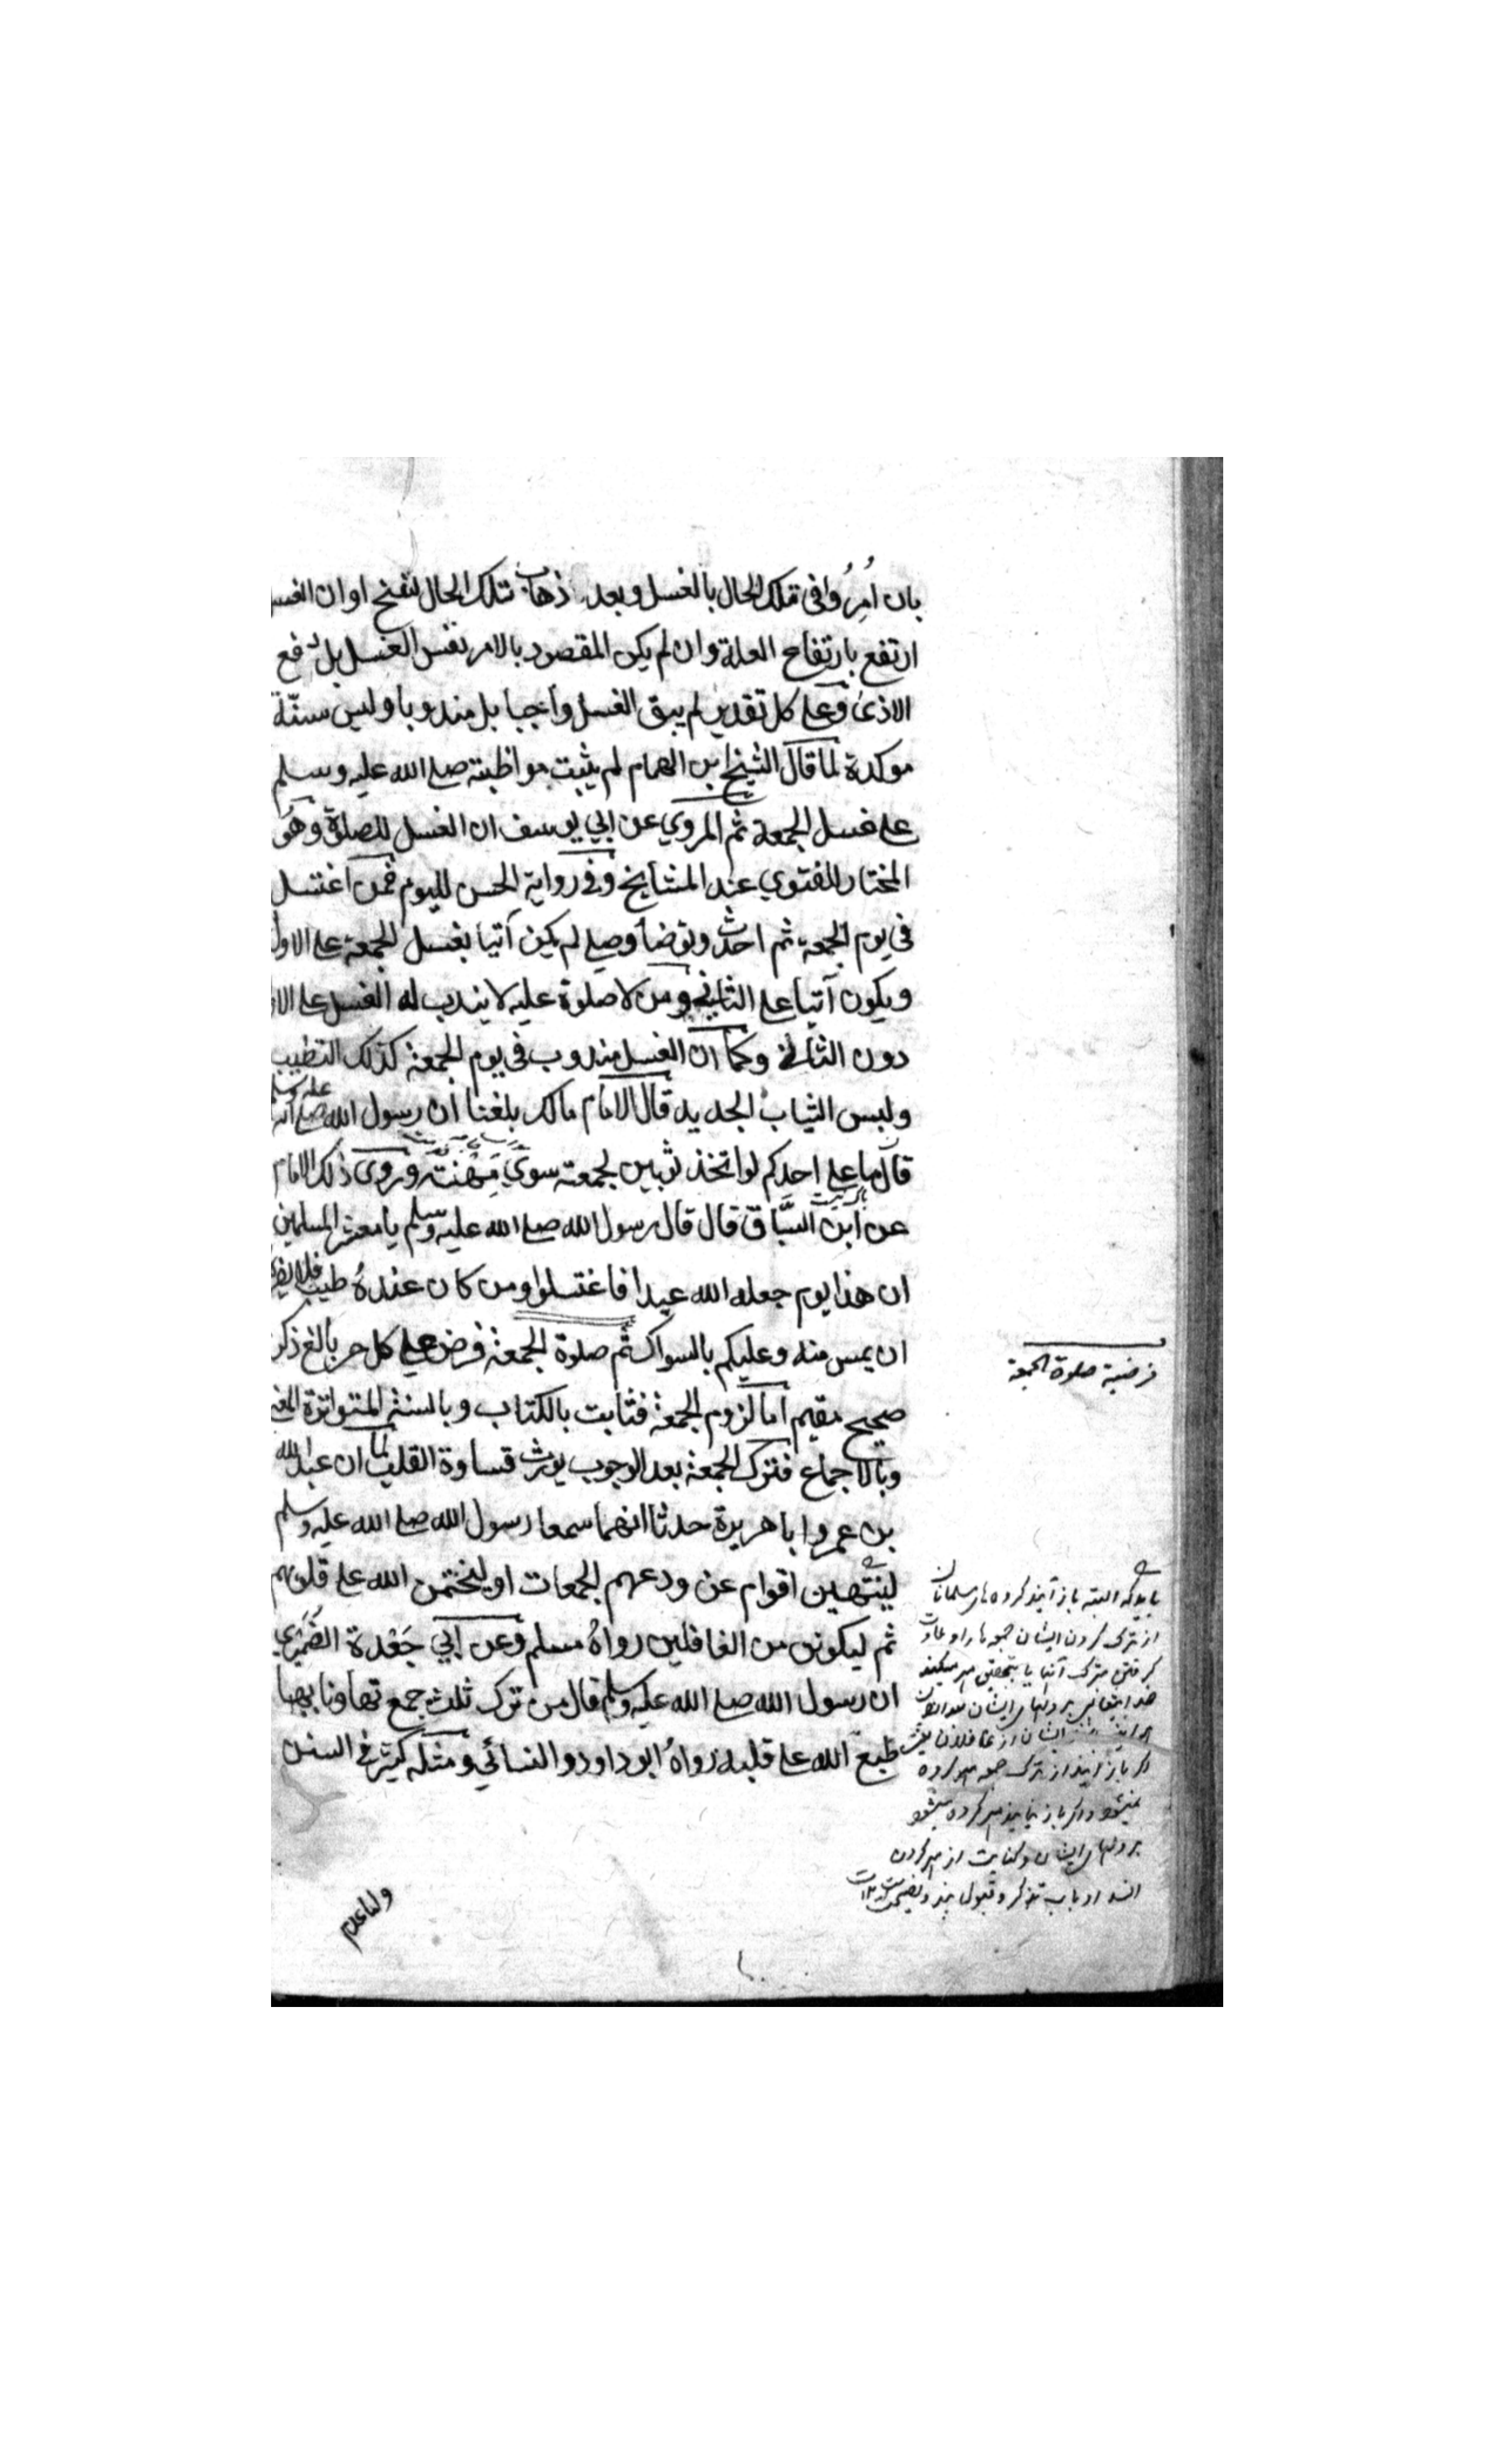 بان اُمِرُوا فى تلك الحال بالغسل و بعد ذهاب تلك الحال لنفسخ او ان الغسل
ارتفع بارتفاع العلة و ان لم يكن المقصود بالامر نفس الغسل بل دفع
الاذى و على كل تقدير لم يبق الغسل واجبا بل مندوبا و ليس سنّة
موكدة لما قال الشيخ ابن الهمام لم يثبت مواظبته صلى الله عليه وسلم
على غسل الجمعة ثم المروي عن ابي يوسف ان الغسل للصلوة و هو
المختار للفتوي عند المشايخ و في رواية الحسن لليوم فمن اغتسل
فى يوم الجمعة ثم احدث و توضأ و صلى لم يكن آتيا بغسل الجمعة على الاول
و يكون آتيا على الثاني و من لا صلوة عليه لا يندب له الغسل على
دون الثاني و كما ان الغسل مندوب فى يوم الجمعة كذلك التطيب
و لبس الثياب الجديد قال الامام مالك بلغنا ان رسول الله صلى الله عليه وسلم
قال ما على احدكم لو اتخذ ثوبين لجمعته سوى مهنته و روى ذلك الامام
عن ابن السَّبَّاق قال قال رسول الله صلى الله عليه وسلم يا معشر المسلمين
ان هذا يوم جعله الله عيدا فاغتسلوا و من كان عنده طيب فلا يضره
ان يمس منه و عليكم بالسواك ثم صلوة الجمعة فرض على كل حر بالغ ذكر
صحيح مقيم اما لزوم الجمعة فثابت بالكتاب و بالسنة المتواترة
و بالاجماع فترك الجمعة بعد الوجوب يورث قساوة القلب لما ان عبد الله
بن عمر و ابا هريرة حدثا انهما سمعا رسول الله صلى الله عليه وسلم
لينتهين اقوام عن ودعهم الجمعات او ليختمن الله على قلوبهم
ثم ليكونن من الغافلين رواه مسلم و عن ابي جَعْدة الضَمْرَي
ان رسول الله صلى الله عليه وسلم قال من ترك ثلث جمع تهاونا بها
طبع الله على قلبه رواه ابو داود و النسائي و مثله كثير في السنن
فرضية صلوة الجمعة
بايد كه البته باز آيند كروه ها مسلمانان
از ترك كردن ايشان جمعه ها را و عادت
كرفتن بترك آنها يا بتحقيق مهر ميكند
خدايتعالى بر دلهاى ايشان
ايشان از غافلان يعنى
اكر باز آيند از ترك جمعه مهر كرده
نميشود و اكر باز نيايند مهر كرده ميشود
بر دلهاى ايشان و كنايت از مهر كردن
باب تذكر و قبول پند و نصيحت است ١٢